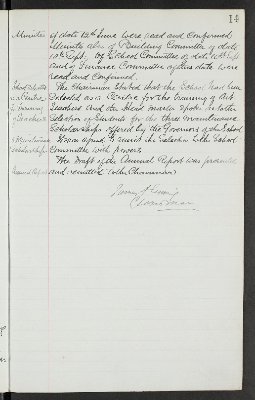 14
Minutes of date 12th June were read and Confirmed
Minutes also of Building Committee of date
10th Sept. of School Committee of date 10th
and of Finance Committee of this date were
read and Confirmed.
The Chairman stated that the School had been
Selected as a Centre for the training of Art
Teachers and the Head Master spoke as to the
selection of Students for the three Maintenance
Scholarships offered by the Governors of the School
It was agreed to remit the Selection to the School
Committee with powers.
The Draft of the Annual Report was presented
and remitted to the Chairman
Chairman